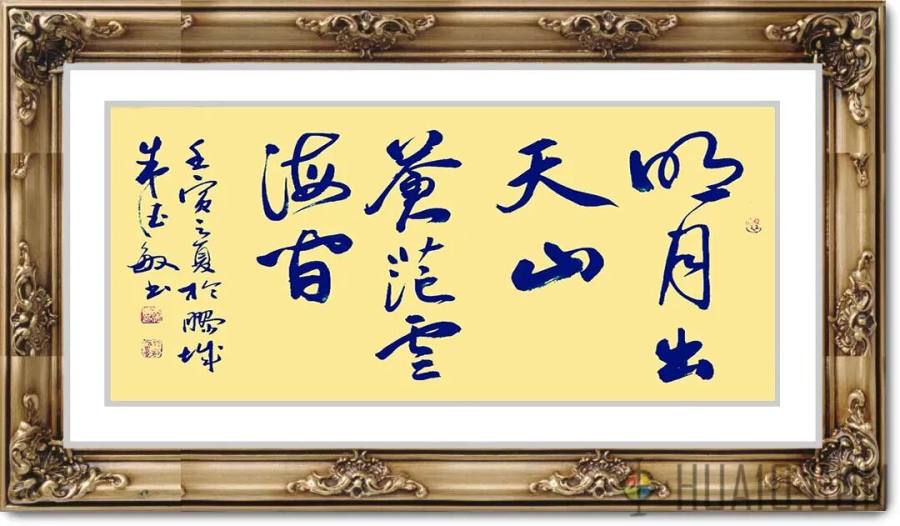 明月出
天山
蒼茫雲
海間
壬寅之夏於膠城
朱德敏書
HUA16.COM